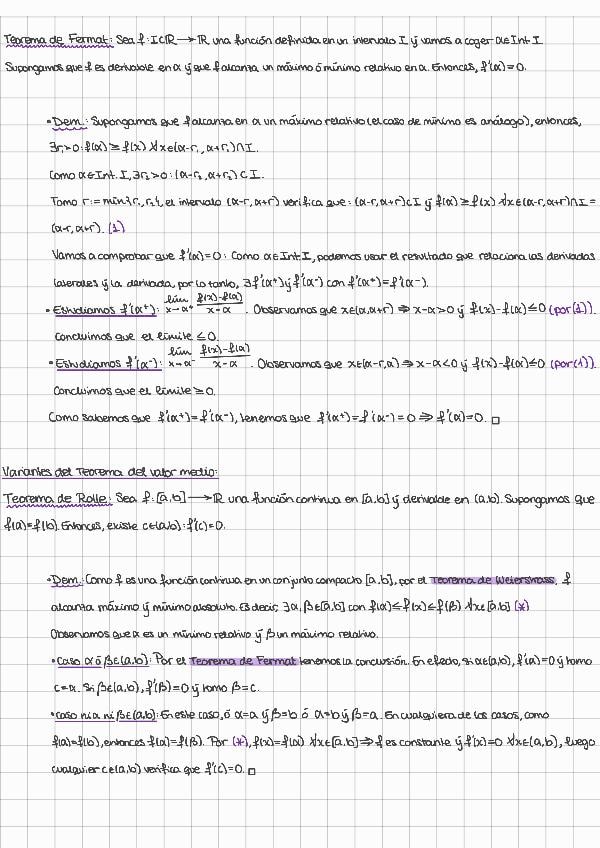 Teorema de Fermat: Sea f: I⊂ℝ ⟶ ℝ una función definida en un intervalo I y vamos a coger α∈Int I
Supongamos que f es derivable en α y que f alcanza un máximo ó mínimo relativo en α. Entonces, f'(α)=0.
• Dem.: Supongamos que f alcanza en α un máximo relativo (el caso de mínimo es análogo), entonces,
∃r₁>0: f(α) ≥ f(x) ∀x∈(α-r₁, α+r₁)∩I.
Como α∈Int. I, ∃r₂>0: (α-r₂, α+r₂) ⊂ I.
Tomo r:=mín{r₁,r₂}, el intervalo (α-r, α+r) verifica que: (α-r, α+r)⊂I y f(α)≥f(x) ∀x∈(α-r, α+r)∩I =
(α-r, α+r). (1)
Vamos a comprobar que f'(α)=0: Como α∈Int I, podemos usar el resultado que relaciona las derivadas
laterales y la derivada, por lo tanto, ∃f'(α⁺) y f'(α⁻) con f'(α⁺)=f'(α⁻).
• Estudiamos f'(α⁺): lím x→α⁺ f(x)-f(α) / x-α . Observamos que x∈(α,α+r) ⇒ x-α>0 y f(x)-f(α)≤0 (por (1)).
Concluimos que el límite ≤0.
• Estudiamos f'(α⁻): lím x→α⁻ f(x)-f(α) / x-α . Observamos que x∈(α-r,α) ⇒ x-α<0 y f(x)-f(α)≤0 (por (1)).
Concluimos que el límite ≥0.
Como sabemos que f'(α⁺)=f'(α⁻), tenemos que f'(α⁺)=f'(α⁻)=0 ⇒ f'(α)=0. □
Variantes del Teorema del valor medio:
Teorema de Rolle: Sea f: [a,b] ⟶ ℝ una función continua en [a,b] y derivable en (a,b). Supongamos que
f(a)=f(b). Entonces, existe c∈(a,b): f'(c)=0.
• Dem.: Como f es una función continua en un conjunto compacto [a,b], por el Teorema de Weierstrass, f
alcanza máximo y mínimo absoluto. Es decir, ∃α,β∈[a,b] con f(α)≤f(x)≤f(β) ∀x∈[a,b] (*)
Observamos que α es un mínimo relativo y β un máximo relativo.
• Caso α ó β∈(a,b): Por el Teorema de Fermat tenemos la conclusión. En efecto, si α∈(a,b), f'(α)=0 y tomo
c=α. Si β∈(a,b), f'(β)=0 y tomo β=c.
• Caso ni α ni β∈(a,b): En este caso, ó α=a y β=b ó α=b y β=a. En cualquiera de los casos, como
f(a)=f(b), entonces f(α)=f(β). Por (*), f(x)=f(α) ∀x∈[a,b] ⇒ f es constante y f'(x)=0 ∀x∈(a,b), luego
cualquier c∈(a,b) verifica que f'(c)=0. □